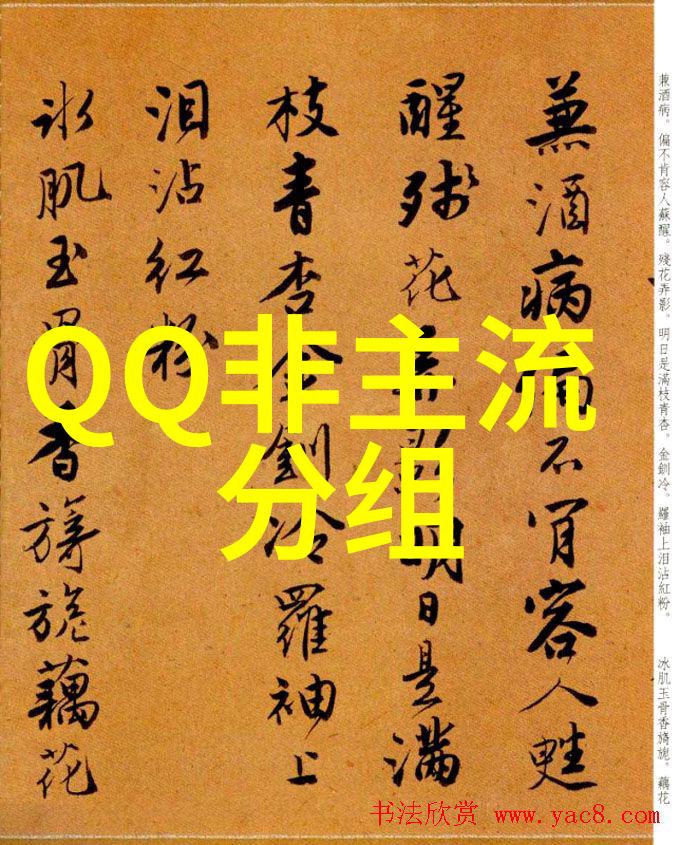 兼酒病偏不肯容人甦
醒殘花弄影明日是滿
枝青杏金釧冷羅袖上
泪沾红粉
冰肌玉骨香旖旎藕花
QQ非主流
分组
兼酒病。偏不肯容人蘇醒。殘花弄影。明日是滿枝青杏。金釧冷。羅袖上泪沾紅粉。
冰肌玉骨香旖旎。藕花
书法欣赏 www.yac8.com